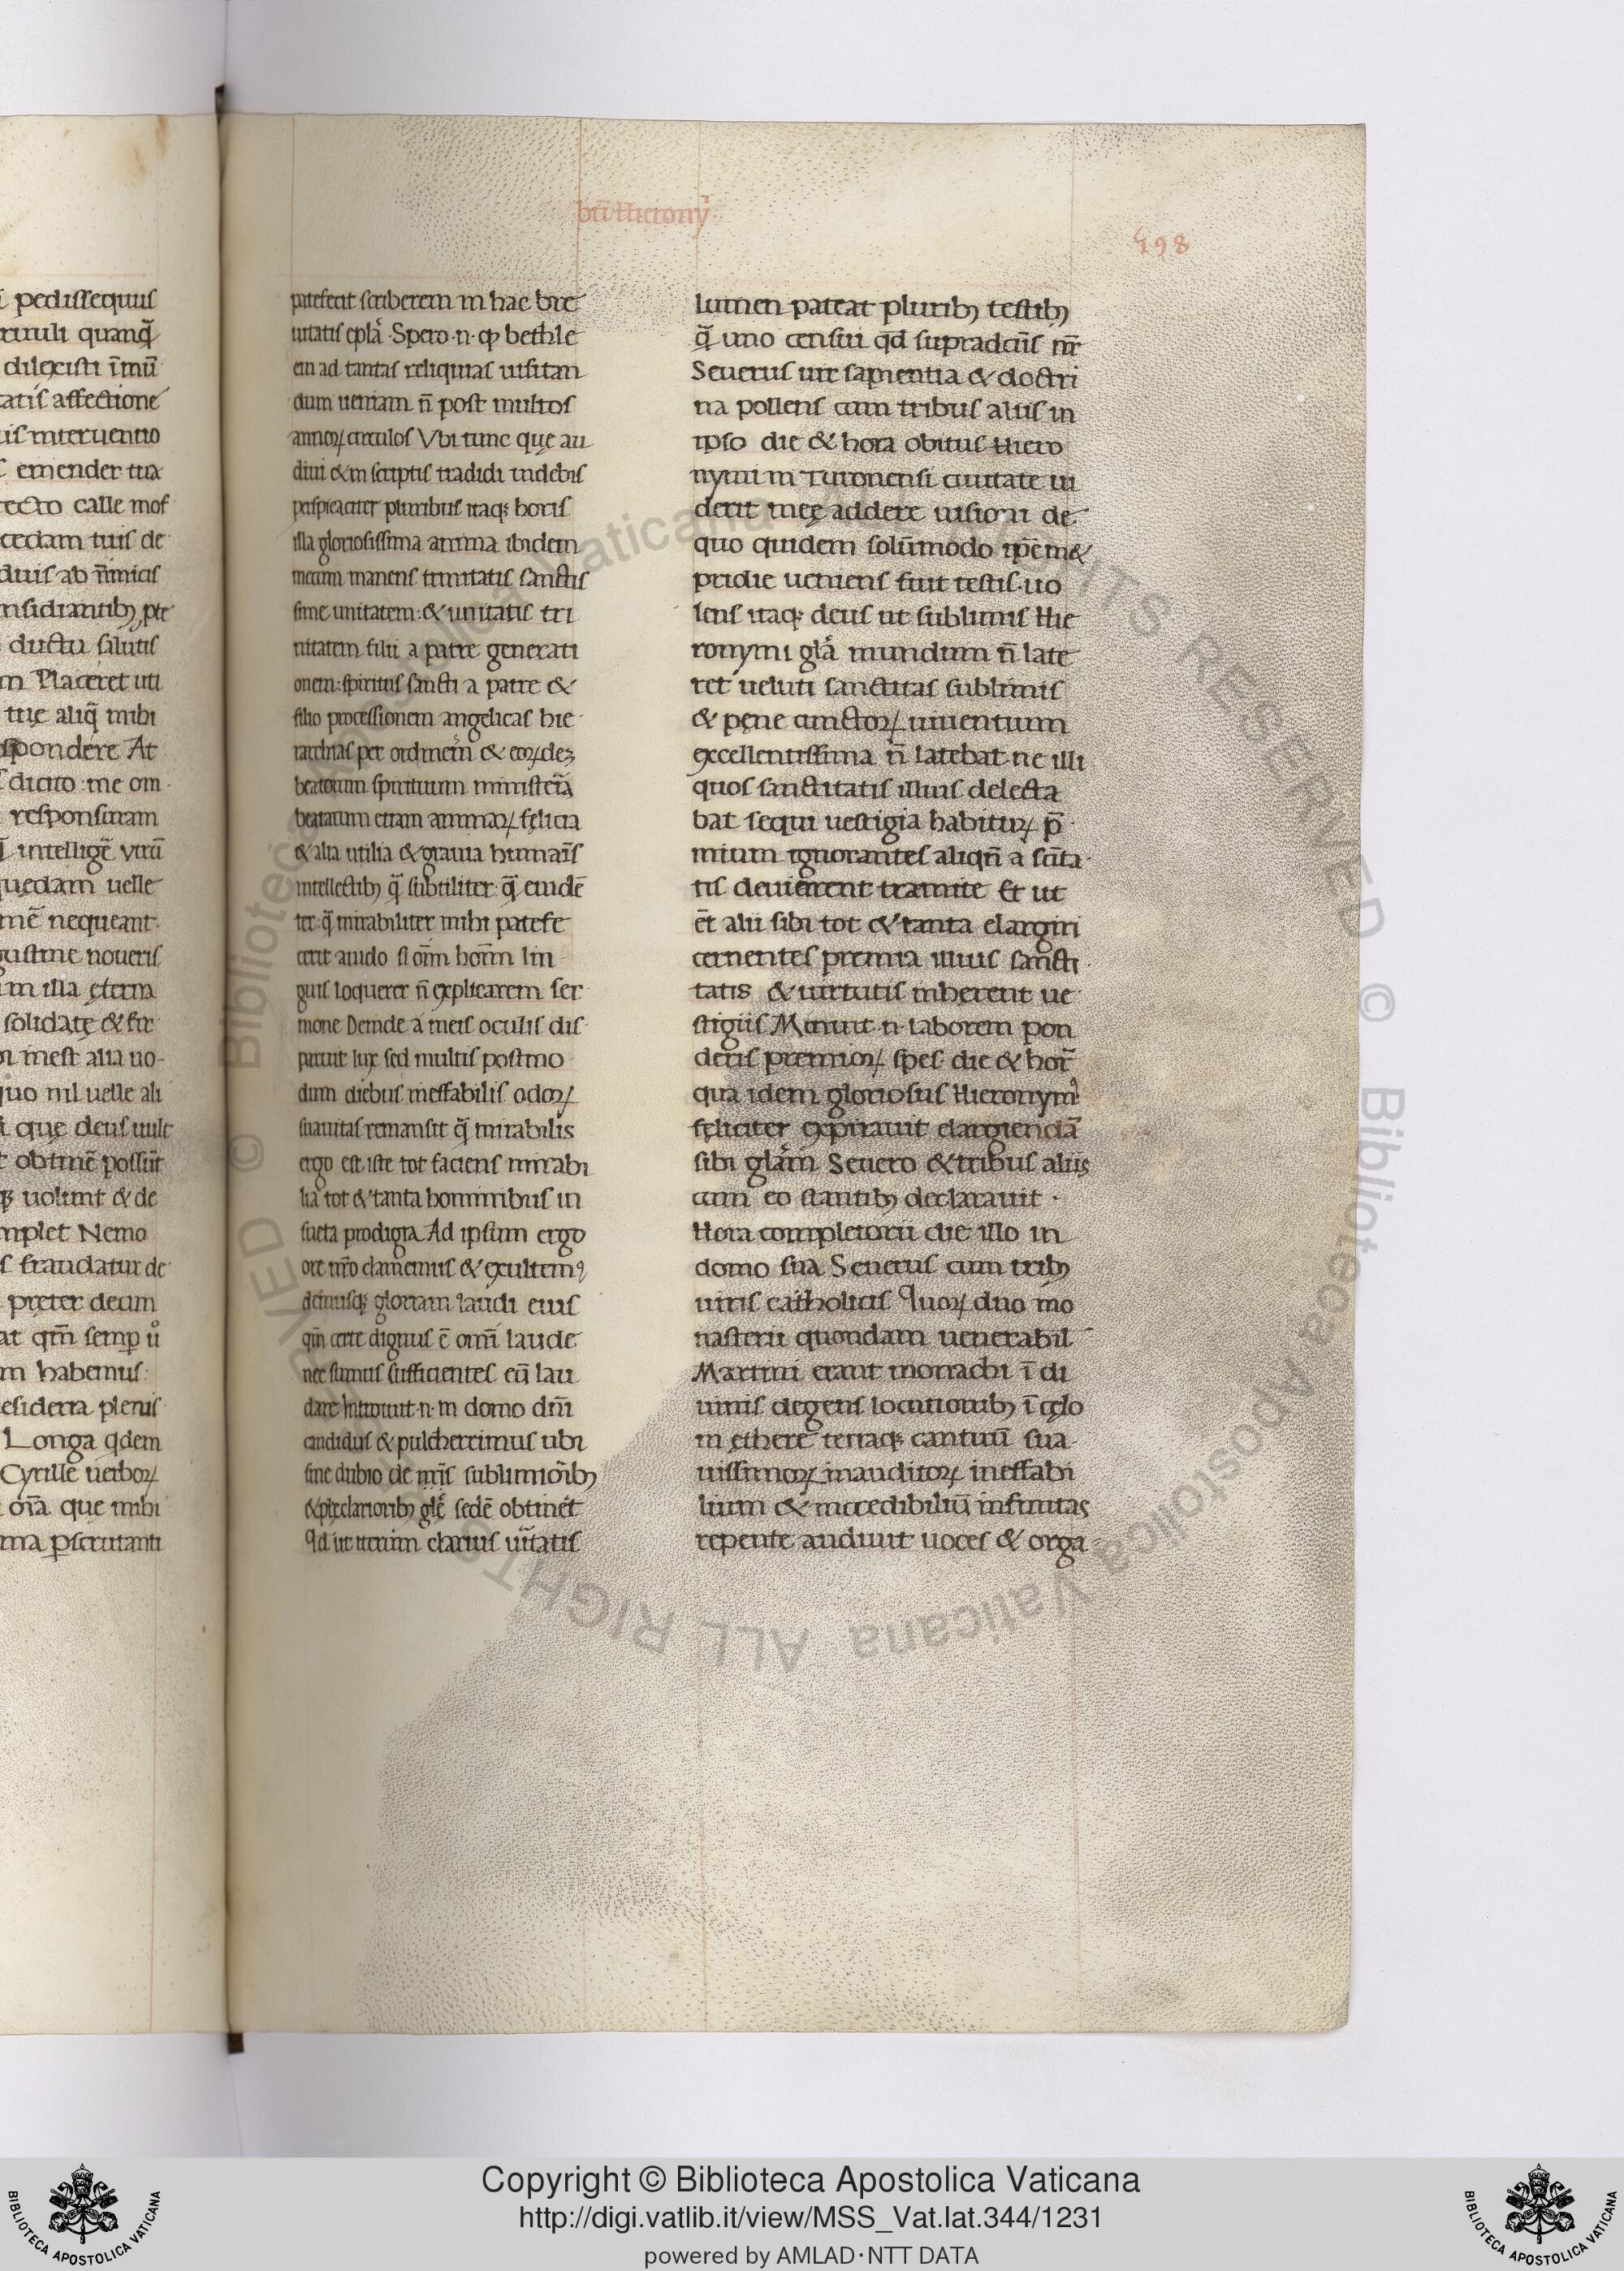 ı pedissequus
riuuli quanq̃
dilexisti ı̃mũ
tatis affectione
is interuentio
emender tua
recto calle mos
cedam tuis de
duis ab ñmicis
nsidiantibꝫ pte
ductu salutis
m Placeret uti
tue aliq̃ mihi
spondere At
dicito me om
responsuram
intelligẽ vtrũ
quędam uelle
mẽ nequeant
gustine noueris
m illa ęterna
solidatę & fir
inest alia uo
quo nil uelle ali
que deus uult
obtinẽ possũt
qꝫ uolunt & de
mplet Nemo
s fraudatur de
pręter deum
at qm̃ semꝑ
m habemus
esideria plenis
Longa qdem
Cyrille uerboꝝ
oı̃a que mihi
ma ꝑscrutanti
btı̃ Hierony
498
patefecit scriberem in hac bre
uitatis epl̃a Spero n ꝙ bethle
em ad tantas reliquias uisitan
dum ueniam ñ post multos
annoꝝ circulos Vbi tunc quę au
diui & in scriptis tradidi uidebis
perspicaciter pluribus itaqꝫ horis
illa gloriosissima anima ibidem
mecum manens trinitatis sanctis
sime unitatem & unitatis tri
nitatem filii a patre generati
onem spiritus sancti a patre &
filio processionem angelicas hie
rarchias per ordinem & eoꝝdeꝫ
beatorum spirituum misteria
beatarum etiam animaꝝ felicia
& alia utilia & grauia humaı̃s
intellectibꝫ q̃ subtiliter q̃ euidẽ
ter q̃ mirabiliter mihi patefe
cerit auido si om̃ hom̃ lin
guis loquerer ñ explicarem ser
mone Deinde a meis oculis dis
paruit lux sed multis postmo
dum diebus ineffabilis odoꝝ
suauitas remansit q̃ mirabilis
ergo est iste tot faciens mirabi
lia tot & tanta hominibus in
sueta prodigia Ad ipsum ergo
ore nr̃o clamemus & exultemꝰ
demusqꝫ gloriam laudi eius
qm̃ certe dignus ẽ omı̃ laude
nec sumus sufficientes eũ lau
dare Introiuit n in domo dñi
candidus & pulcherrimus ubi
sine dubio de mı̃s sublimiorı̃bꝫ
& pręclarioribꝫ glę sedẽ obtinet
Qd ut iterum clarius uı̃tatis
lumen pateat pluribꝫ testibꝫ
q̃ uno censui qđ supradcũs nr̃
Seuerus uir sapientia & doctri
na pollens cum tribus aliis in
ipso die & hora obitus Hiero
nymi in Turonensi ciuitate ui
derit meę addere uisioni de
quo quidem solũmodo ip̃em&
pridie ueniens fuit testis uo
lens itaqꝫ deus ut sublimis Hie
ronymi gl̃a mundum ñ late
ret ueluti sanctitas sublimis
& pęne cunctoꝝ uiuentum
excellentissima ñ latebat ne illi
quos sanctitatis illius delecta
bat sequi uestigia habituꝝ p̃
mium ignorantes aliqñ a scı̃ta
tis deuierent tramite Et ut
et̃ alii sibi tot & tanta elargiri
cernentes premia illius sancti
tatis & uirtutis inherent ue
stigiis Minuit n laborem pon
deris premioꝝ spes die & hor̃
qua idem gloriosus Hieronymꝰ
feliciter expirauit elargiendã
sibi glãm Seuero & tribus aliis
cum eo stantibꝫ declarauit
Hora completorii die illo in
domo sua Seuerus cum tribꝫ
uiris catholicis Quoꝝ duo mo
nasterii quondam uenerabil
Martini erant monachi ı̃ di
uinis degens locutionibꝫ ı̃ cęlo
in ęthere terraqꝫ cantuũ sua
uissimoꝝ inauditoꝝ ineffabi
lium & incredibiliũ infinitas
repente audiuit uoces & orga
Copyright © Biblioteca Apostolica Vaticana
http://digi.vatlib.it/view/MSS_Vat.lat.344/1231
powered by AMLAD·NTT DATA
BIBLIOTECA APOSTOLICA VATICANA
BIBLIOTECA APOSTOLICA VATICANA
© Biblioteca Apostolica Vaticana ALL RIGHTS RESERVED © Biblioteca Apostolica Vaticana ALL RIGHTS RESERVED